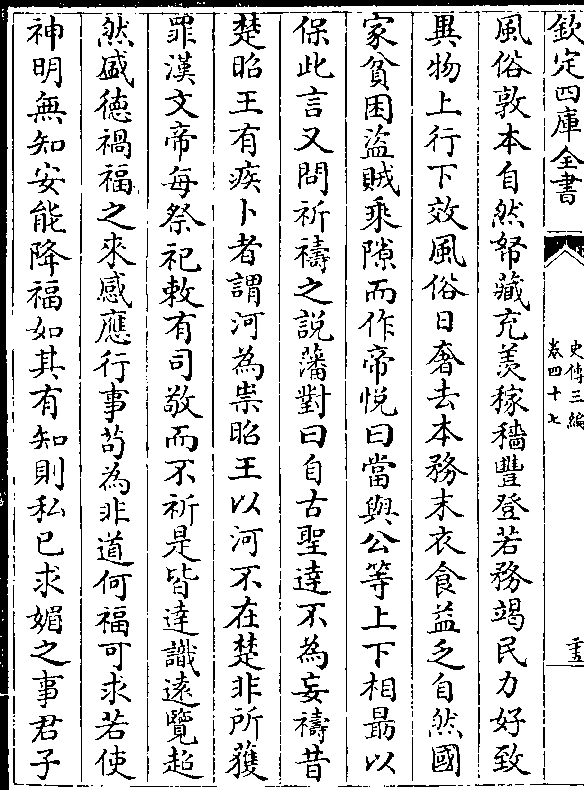 欽定四庫全書
史傳三編
卷四十七
風俗敦本自然帑藏充羡稼穡豐登若務竭民力好致
異物上行下效風俗日奢去本務末衣食益乏自然國
家貧困盜賊乘隙而作帝悦曰當與公等上下相勗以
保此言又問祈禱之説藩對曰自古聖達不為妄禱昔
楚昭王有疾卜者謂河為祟昭王以河不在楚非所獲
罪漢文帝每祭祀敕有司敬而不祈是皆達識遠覽超
然盛德禍福之來感應行事苟為非道何福可求若使
神明無知安能降福如其有知則私已求媚之事君子